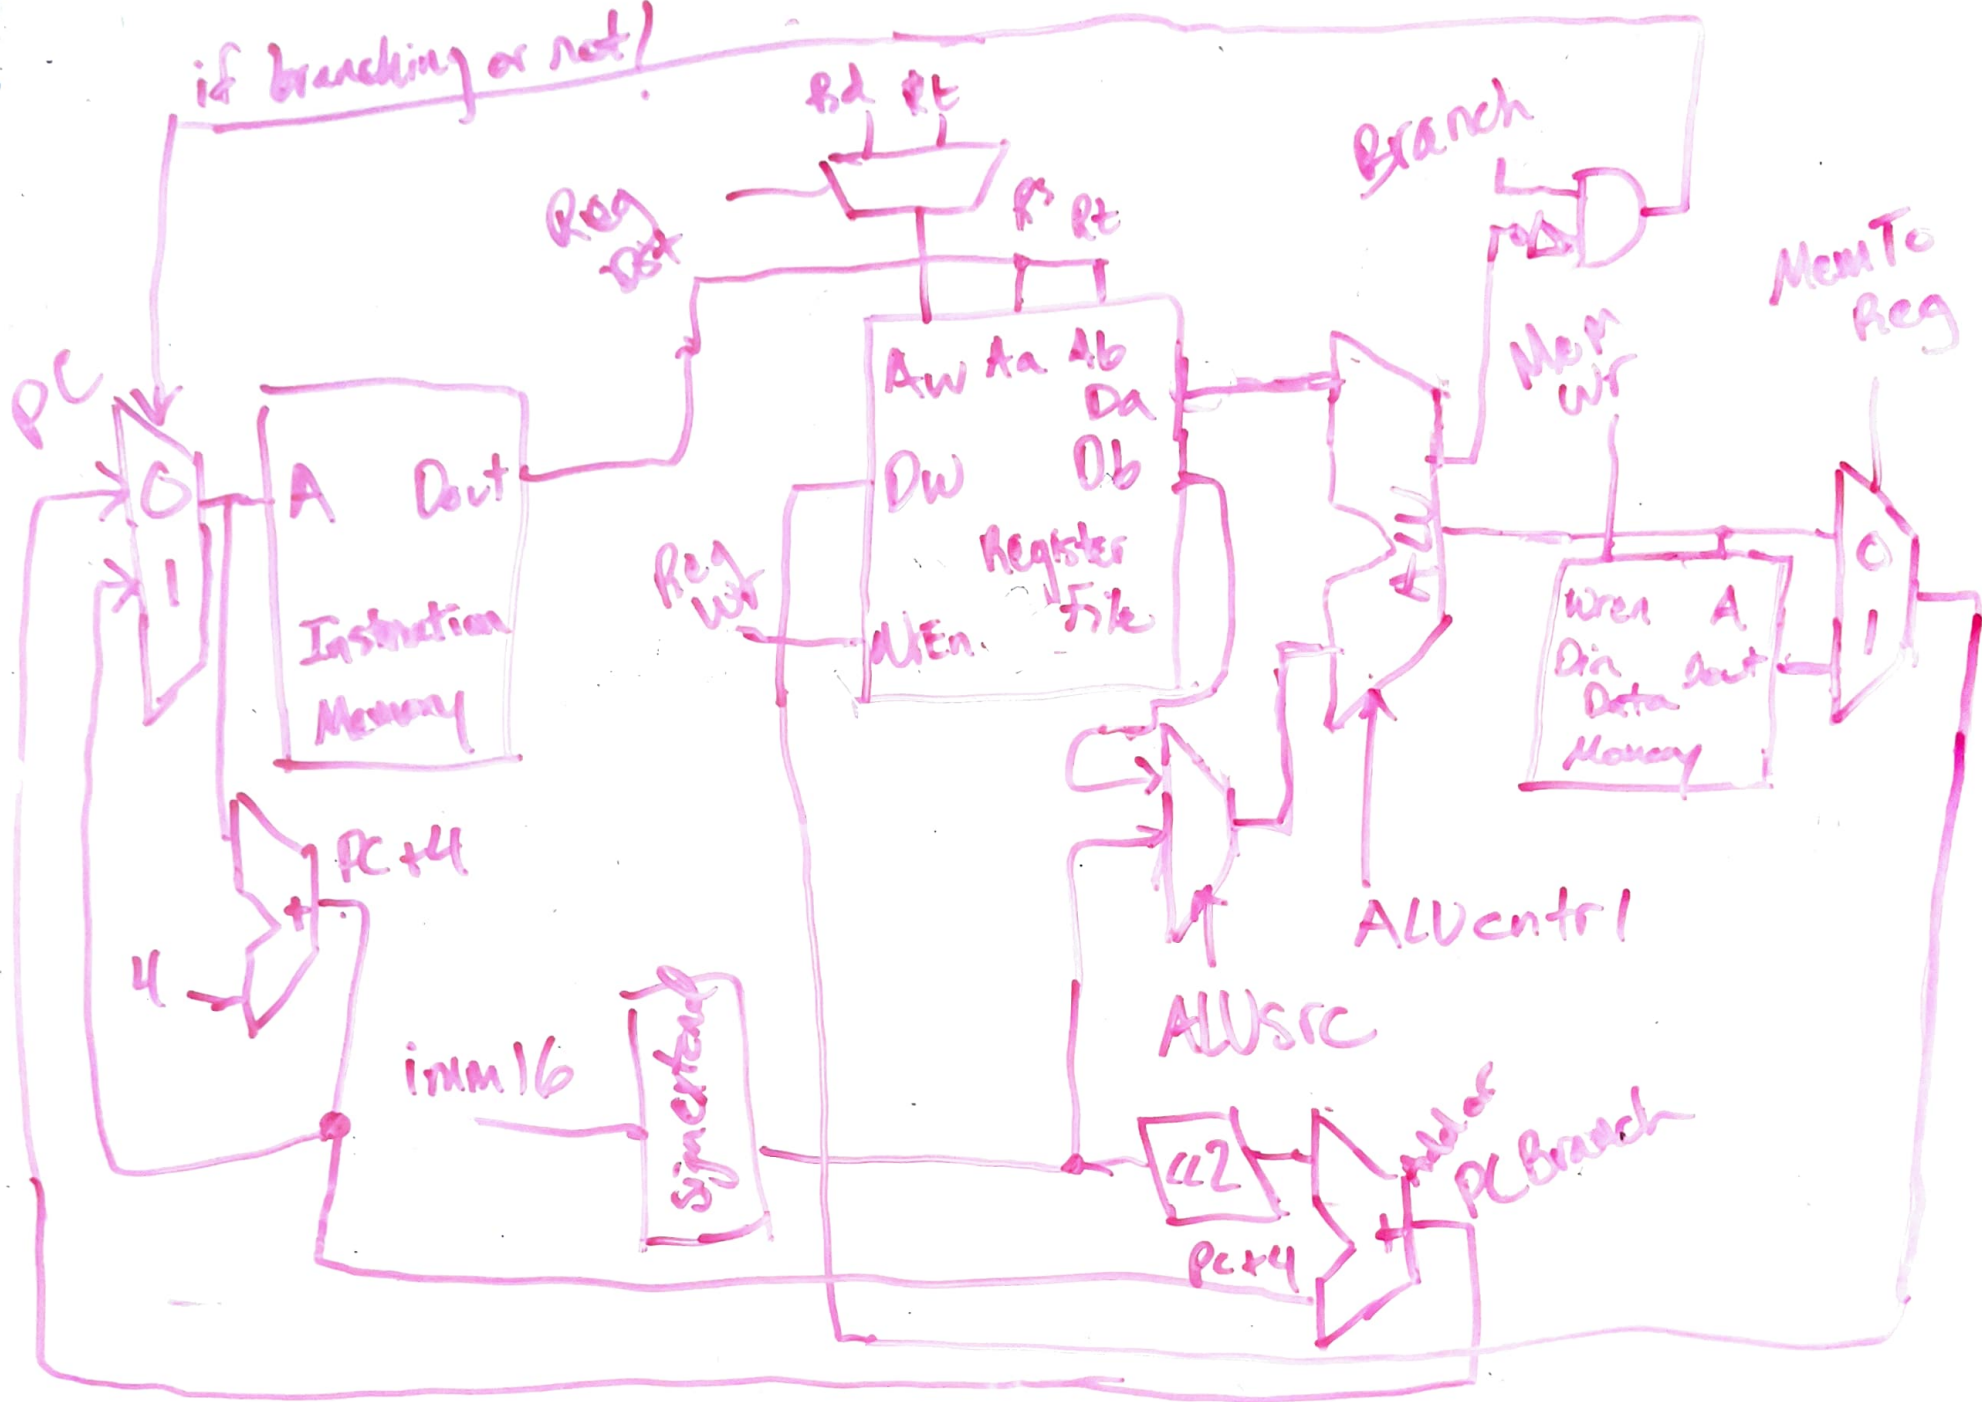 if branching or not!
Rd Rt
Branch
Reg
Dst
Rs Rt
MemTo
Reg
Mem
Wr
PC
0
1
A Dout
Instruction
Memory
Aw Aa Ab
Da
Dw Db
Register
File
WrEn
Reg
Wr
ALU
Wren A
Din Dout
Data
Memory
0
1
PC+4
+
4
ALUcntrl
ALUsrc
imm16
<<2
PC+4
+
PCBranch